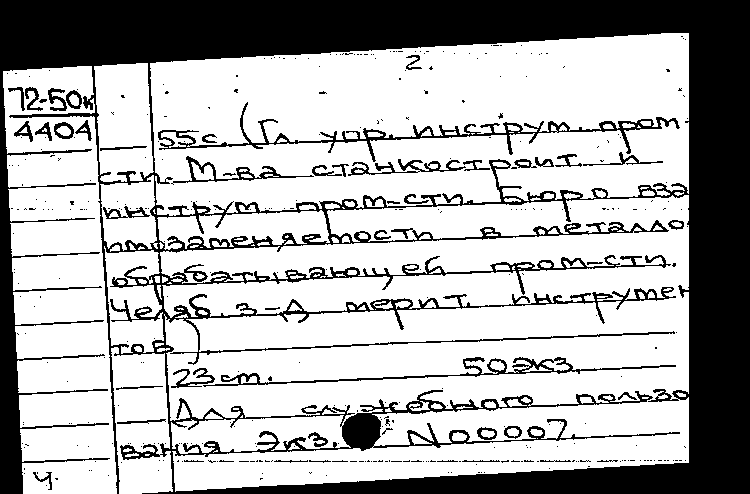 2.
72-50к
4404
55с. (Гл. упр. инструм. пром-
сти. М-ва станкостроит. и
инструм. пром-сти. Бюро вза
имозаменяемости в металло
обрабатывающей пром-сти.
Челяб. з-д мерит. инструмен
тов).
23 см. 50 экз.
Для служебного пользо
вания. Экз. N00007.
ч.